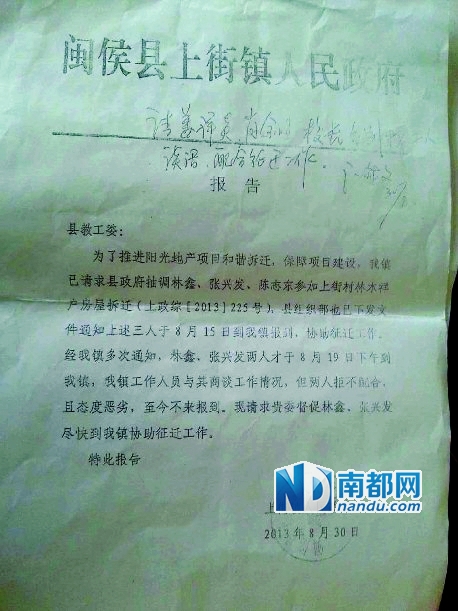 闽侯县上街镇人民政府
谈话,配合征迁工作。
报告
县教工委:
为了推进阳光地产项目和谐拆迁,保障项目建设,我镇
已请求县政府抽调林鑫、张兴发、陈志东参加上街村林木祥
户房屋拆迁(上政综[2013]225号),县组织部也已下发文
件通知上述三人于8月15日到我镇报到,协助征迁工作。
经我镇多次通知,林鑫、张兴发两人才于8月19日下午到
我镇,我镇工作人员与其两谈工作情况,但两人拒不配合,
且态度恶劣,至今不来报到。现请求贵委督促林鑫、张兴发
尽快到我镇协助征迁工作。
特此报告
上
2013年8月30日
ND 南都网
nandu.com